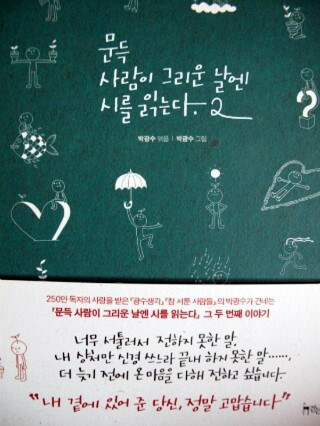 문득
사람이 그리운 날엔
시를 읽는다. 2
박광수 엮음 | 박광수 그림
?
250만 독자의 사랑을 받은 『광수생각』『참 서툰 사람들』의 박광수가 건네는
『문득 사람이 그리운 날엔 시를 읽는다』 그 두 번째 이야기
너무 서툴러서 전하지 못한 말,
내 상처만 신경 쓰느라 끝내 하지 못한 말……,
더 늦기 전에 온 마음을 다해 전하고 싶습니다.
"내 곁에 있어 준 당신, 정말 고맙습니다"